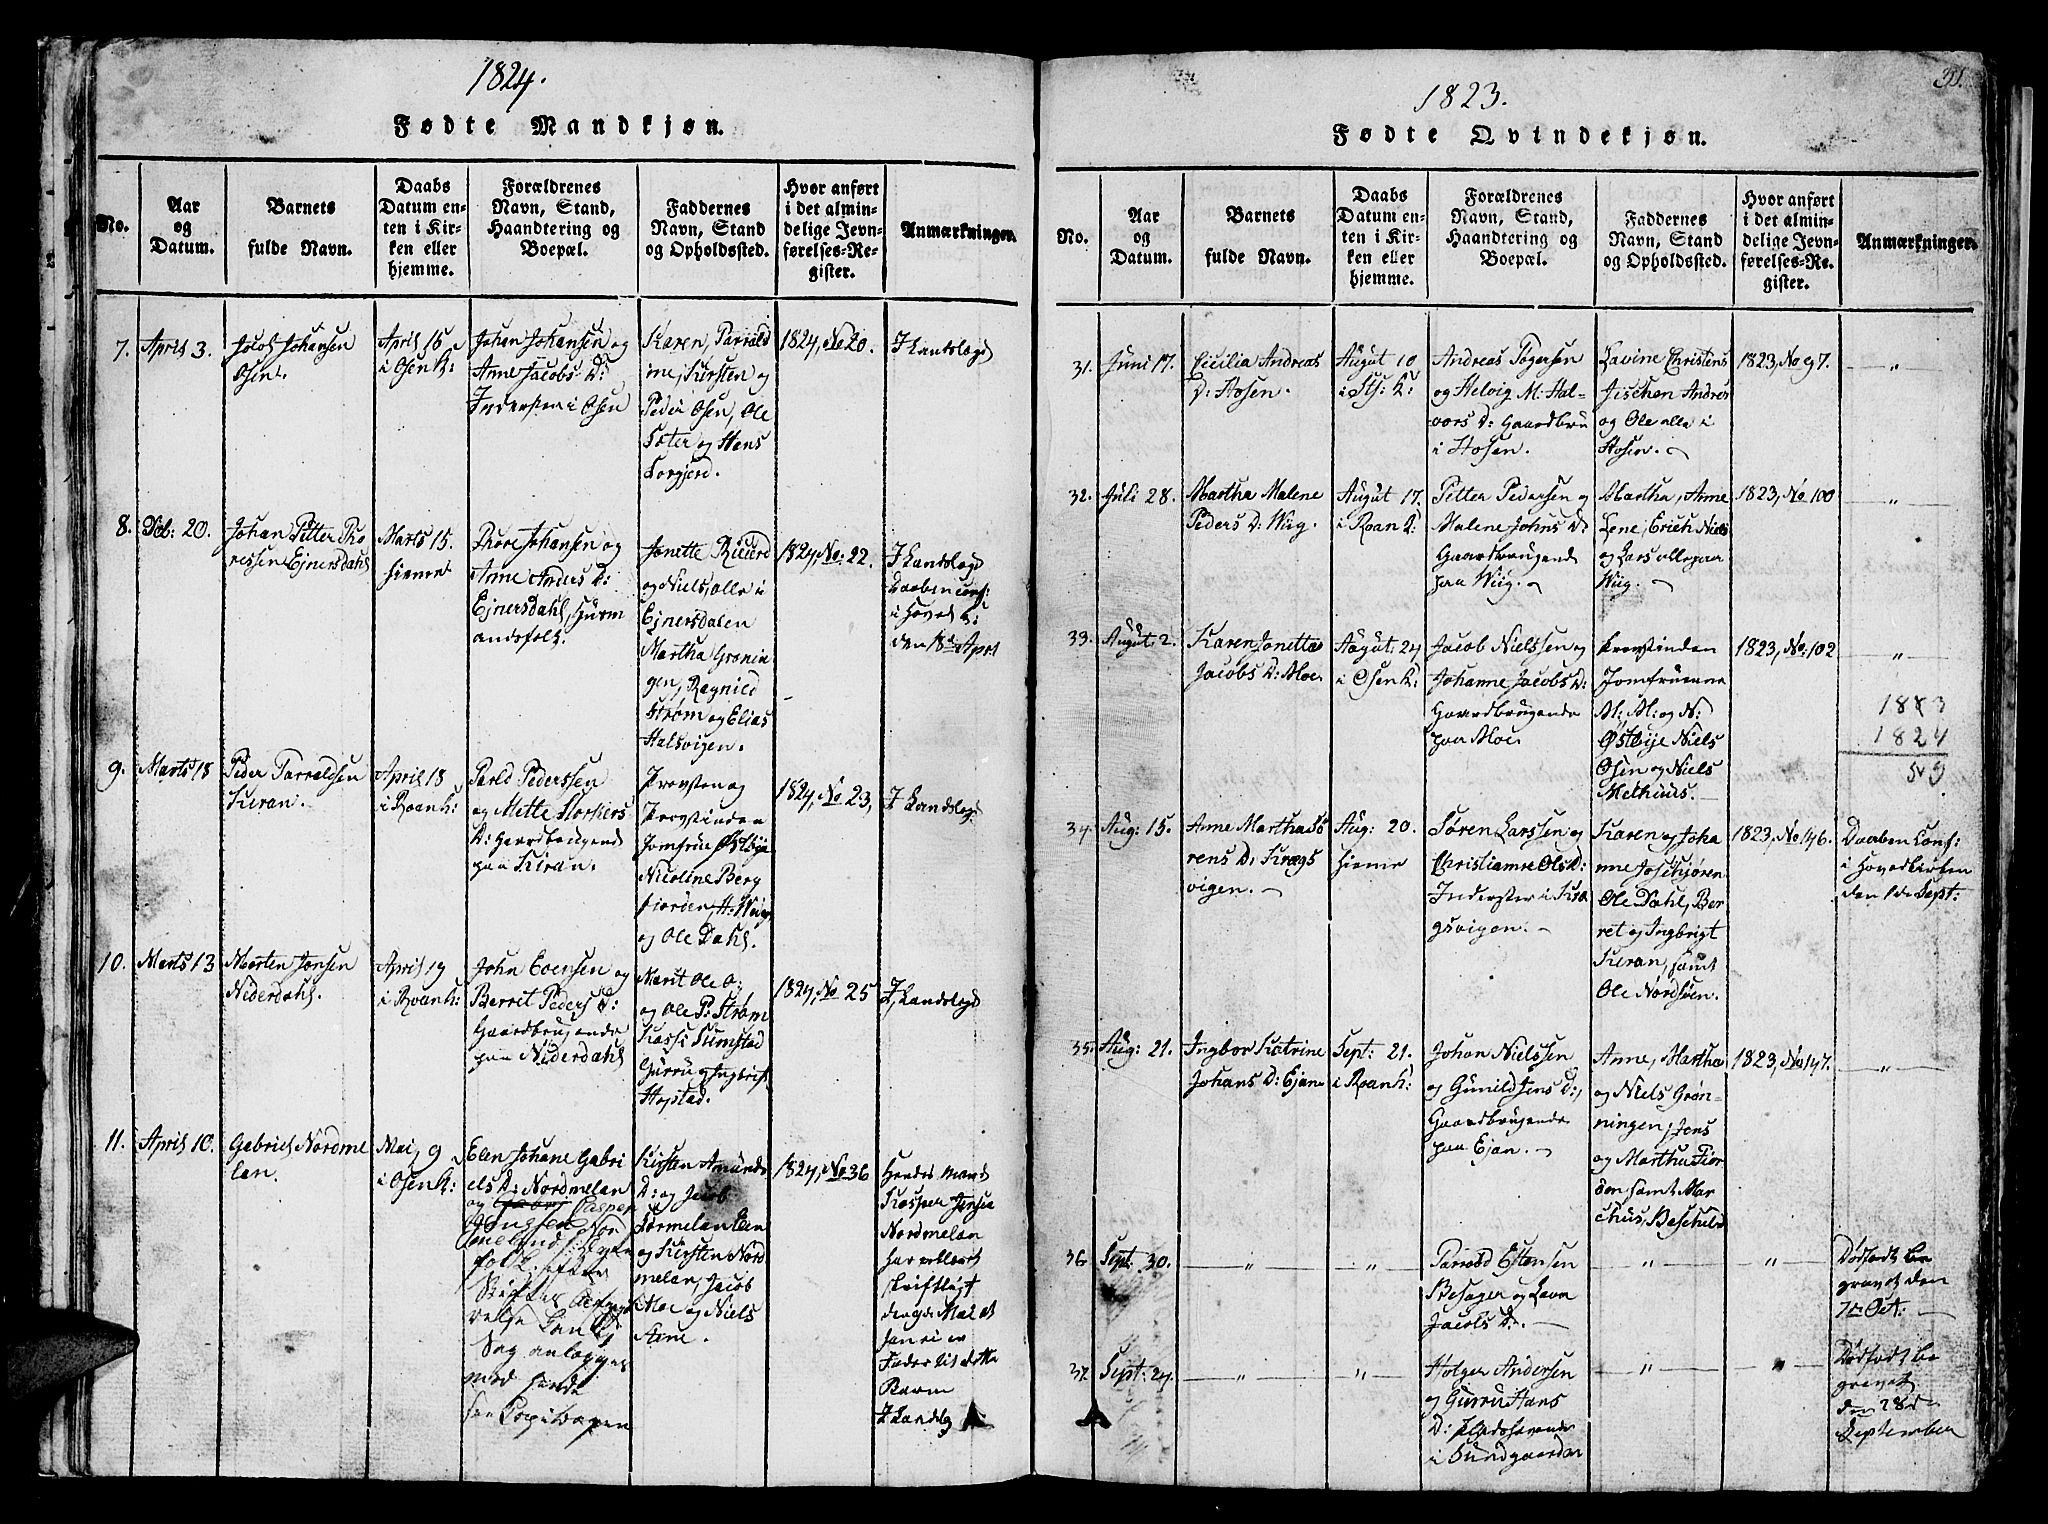 1824.
Fødte Mandkjøn.
No.
Aar
og
Datum.
Barnets
fulde Navn.
Daabs
Datum en-
ten i Kir-
ken eller
hjemme.
Forældrenes
Navn, Stand,
Haandtering og
Boepæl.
Faddernes
Navn, Stand
og Opholdssted.
Hvor anført
i det almin-
delige Jevn-
førelses-Re-
gister.
Anmærkninger.
7.
April 3.
Jacob Johansen
Osen.
April 16
i Osen K:
Johan Johansen og
Anne Jacobs D:
Inderster i Osen
Karen, Tarrald
ine, Kirsten og
Peder Osen, Ole
Sæter og Hens
1824, No 20.
8.
Feb: 20.
Johan Petter Tho
ressen Ejnersdahl
Marts 15.
hieme
Thore Johansen og
Anne Anders D:
Ejnersdahl, Huusm
andsfolk.
Jonette
og Niels, alle i
Ejnersdalen
Martha Grønin
gen, Ragnild
Strøm og Elias
Halsvigen.
1824, No: 22.
Daaben conf:
i Hoved K:
den 18de April
9.
Marts 18
Peder Tarraldsen
Kiran.
April 18
i Roan K:
Tarld Pedersen
og Mette
D: Gaardbrugende
paa Kiran.
Provsten og
Provstinden
Jomfrue Østbye
Nicoline Berg
fiorden,
og Ole Dahl.
1824, No 23,
I Landsogn
10.
Marts 13
Morten Jonsen
Niderdahl.
April 19
i Roan K:
John Evensen og
Berret Peders D:
Gaardbrugende
paa Niderdahl
Marit Ole O:
og Ole P: Strøm
Kassi Sumstad
Gurru og Ingbrigt
Hopstad.
1824, No 25
11.
April 10.
Gabriel Nordme
lan.
Mai 9
i Osen K:
Elen Johane Gabri
els D: Nordmelan
og Casper
Nord
folk. efter
Sag anlægges
mod hende
Kirsten Amunds
D: og Jacob
Sørmelan Elen
og Kirsten Nord
melan, Jacob
Moe og Niels
1824, No 36
Hendes Mand
Kasper Jensen
Nordmelan
har erklæret
skriftligt
han ei er
Fader til dette
Barn
1823.
Fødte Qvindekjøn.
31.
No.
Aar
og
Datum.
Barnets
fulde Navn.
Daabs
Datum en-
ten i Kir-
ken eller
hjemme.
Forældrenes
Navn, Stand,
Haandtering og
Boepæl.
Faddernes
Navn, Stand
og Opholdssted.
Hvor anført
i det almin-
delige Jevn-
førelses-Re-
gister.
Anmærkninger.
31.
Juni 17.
Cicilia Andreas
D: Hosen.
August 10
i St: K:
Andreas Tøgersen
og Helvig M: Hal-
vors D: Gaardbru
i Hosen.
Lavine Christens
og Ole alle i
Hosen.
1823, No 97.
"
32.
Juli 28.
Martha Malene
Peders D: Wiig.
August 17.
i Roan K:
Petter Pedersen og
Malene Johns D:
Gaardbrugende
paa Wiig.
Martha, Anne
Lene, Erich Niels
og Lars alle paa
Wiig.
1823, No 100
"
33.
August 2.
Karen Jonetta
Jacobs D: Moe.
August 24
i Osen K:
Jacob Nielssen og
Johanne Jacobs D:
Gaardbrugende
paa Moe.
Provstinden
Jomfruerne
M: M: og N:
Østbye Niels
Osen og Niels
Methius.
1823, No: 102
"
1883
1824
59
34.
Aug: 15.
Anne Martha Sø
rens D: Krags
vigen.
Aug: 20.
hieme
Søren Larssen og
Christianne Ols D:
Inderster i Kra
gsvigen.
Karen og Joha
nne
Ole Dahl, Ber
ret og Ingbrigt
Kiran, samt
Ole Nordsøen.
1823, No 146.
Daaben Conf:
i Hovedkirken
den 1de Sept:
35.
Aug: 21.
Ingbor Katrine
Johans D: Ejan
Sept: 21.
i Roan K:
Johan Nielssen
og Gunild Jens D:,
Gaardbrugende
paa Ejan.
Anne, Martha
og Niels Grøn-
ningen, Jens
og Martha Fior
den samt Mar
chus Beschela
1823, No 147.
"
36
Sept: 30.
"
"
Tarrald Estensen
Besager og Lava
Jacobs D:
"
"
Dødfødt be
gravet den
7de Oct:
37
Sept: 24.
"
"
Holger Andersen
og Gurru Hans
D: Pladshavende
i Sundgaarden
"
"
Dødfødt be
gravet
den 28de
September